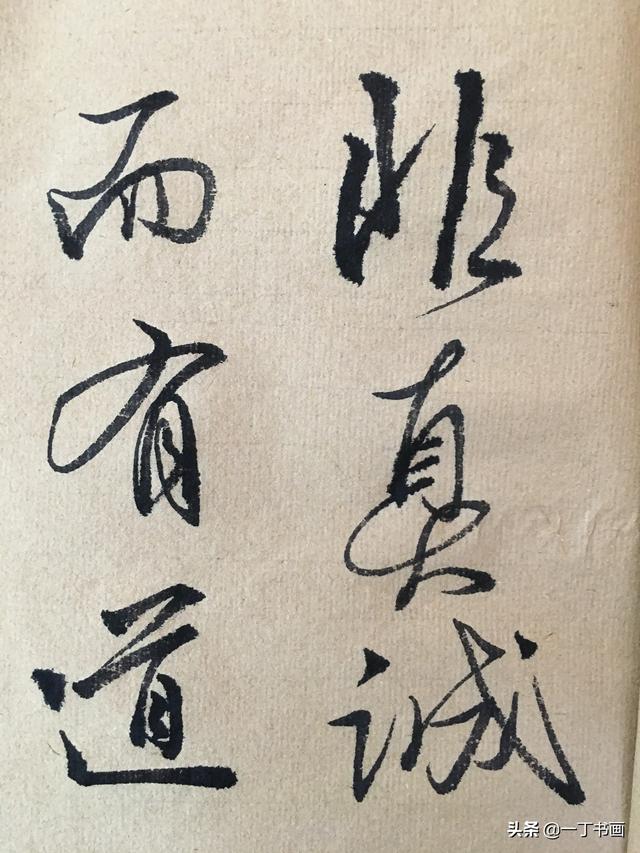 非真诚
而有道
头条 @一丁书画